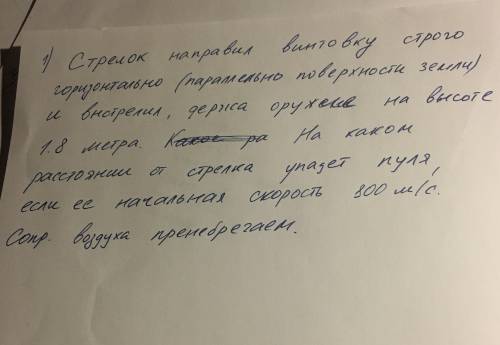 1) Стрелок направил винтовку строго
горизонтально (параллельно поверхности земли)
и выстрелил, держа оружие на высоте
1.8 метра. На каком
расстоянии от стрелка упадет пуля,
если ее начальная скорость 800 м/с.
Сопр. воздуха пренебрегаем.